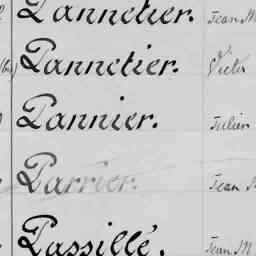 Pannetier. Jean M
(bis) Pannetier. Victor
Pannier. Julien
Parrier. Jean
Passillé. Jean M